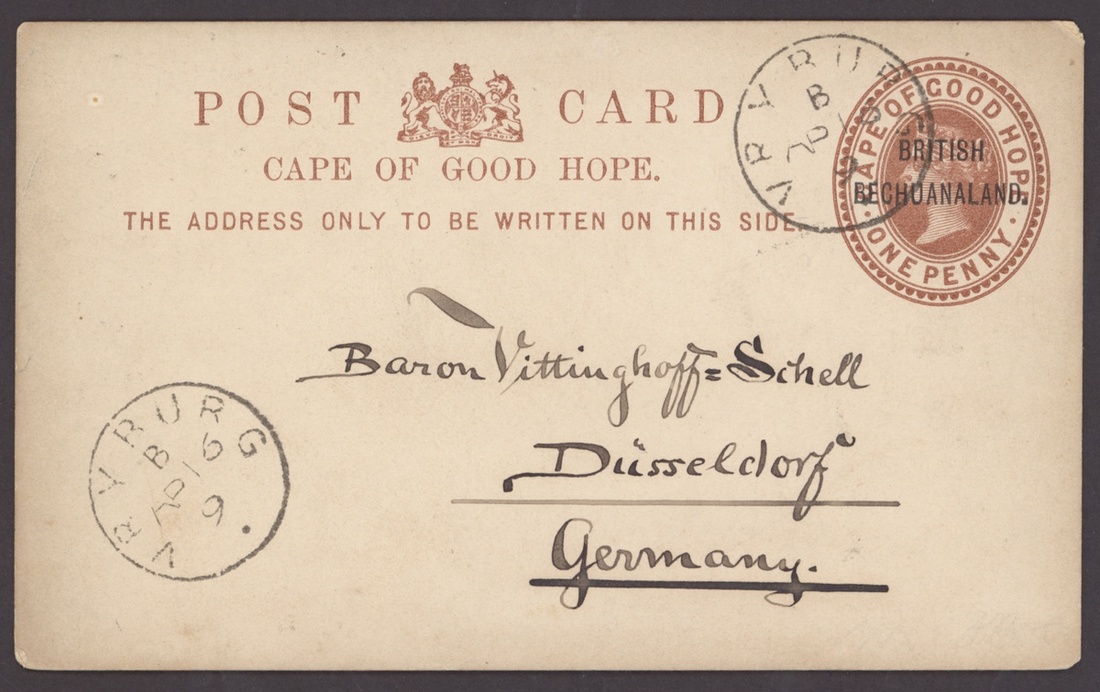 POST CARD
CAPE OF GOOD HOPE.
THE ADDRESS ONLY TO BE WRITTEN ON THIS SIDE.
CAPE OF GOOD HOPE
BRITISH
BECHUANALAND.
ONE PENNY
VRYBURG
B
AP 16
9
Baron Vittinghoff=Schell
Düsseldorf
Germany.
VRYBURG
B
AP 16
9